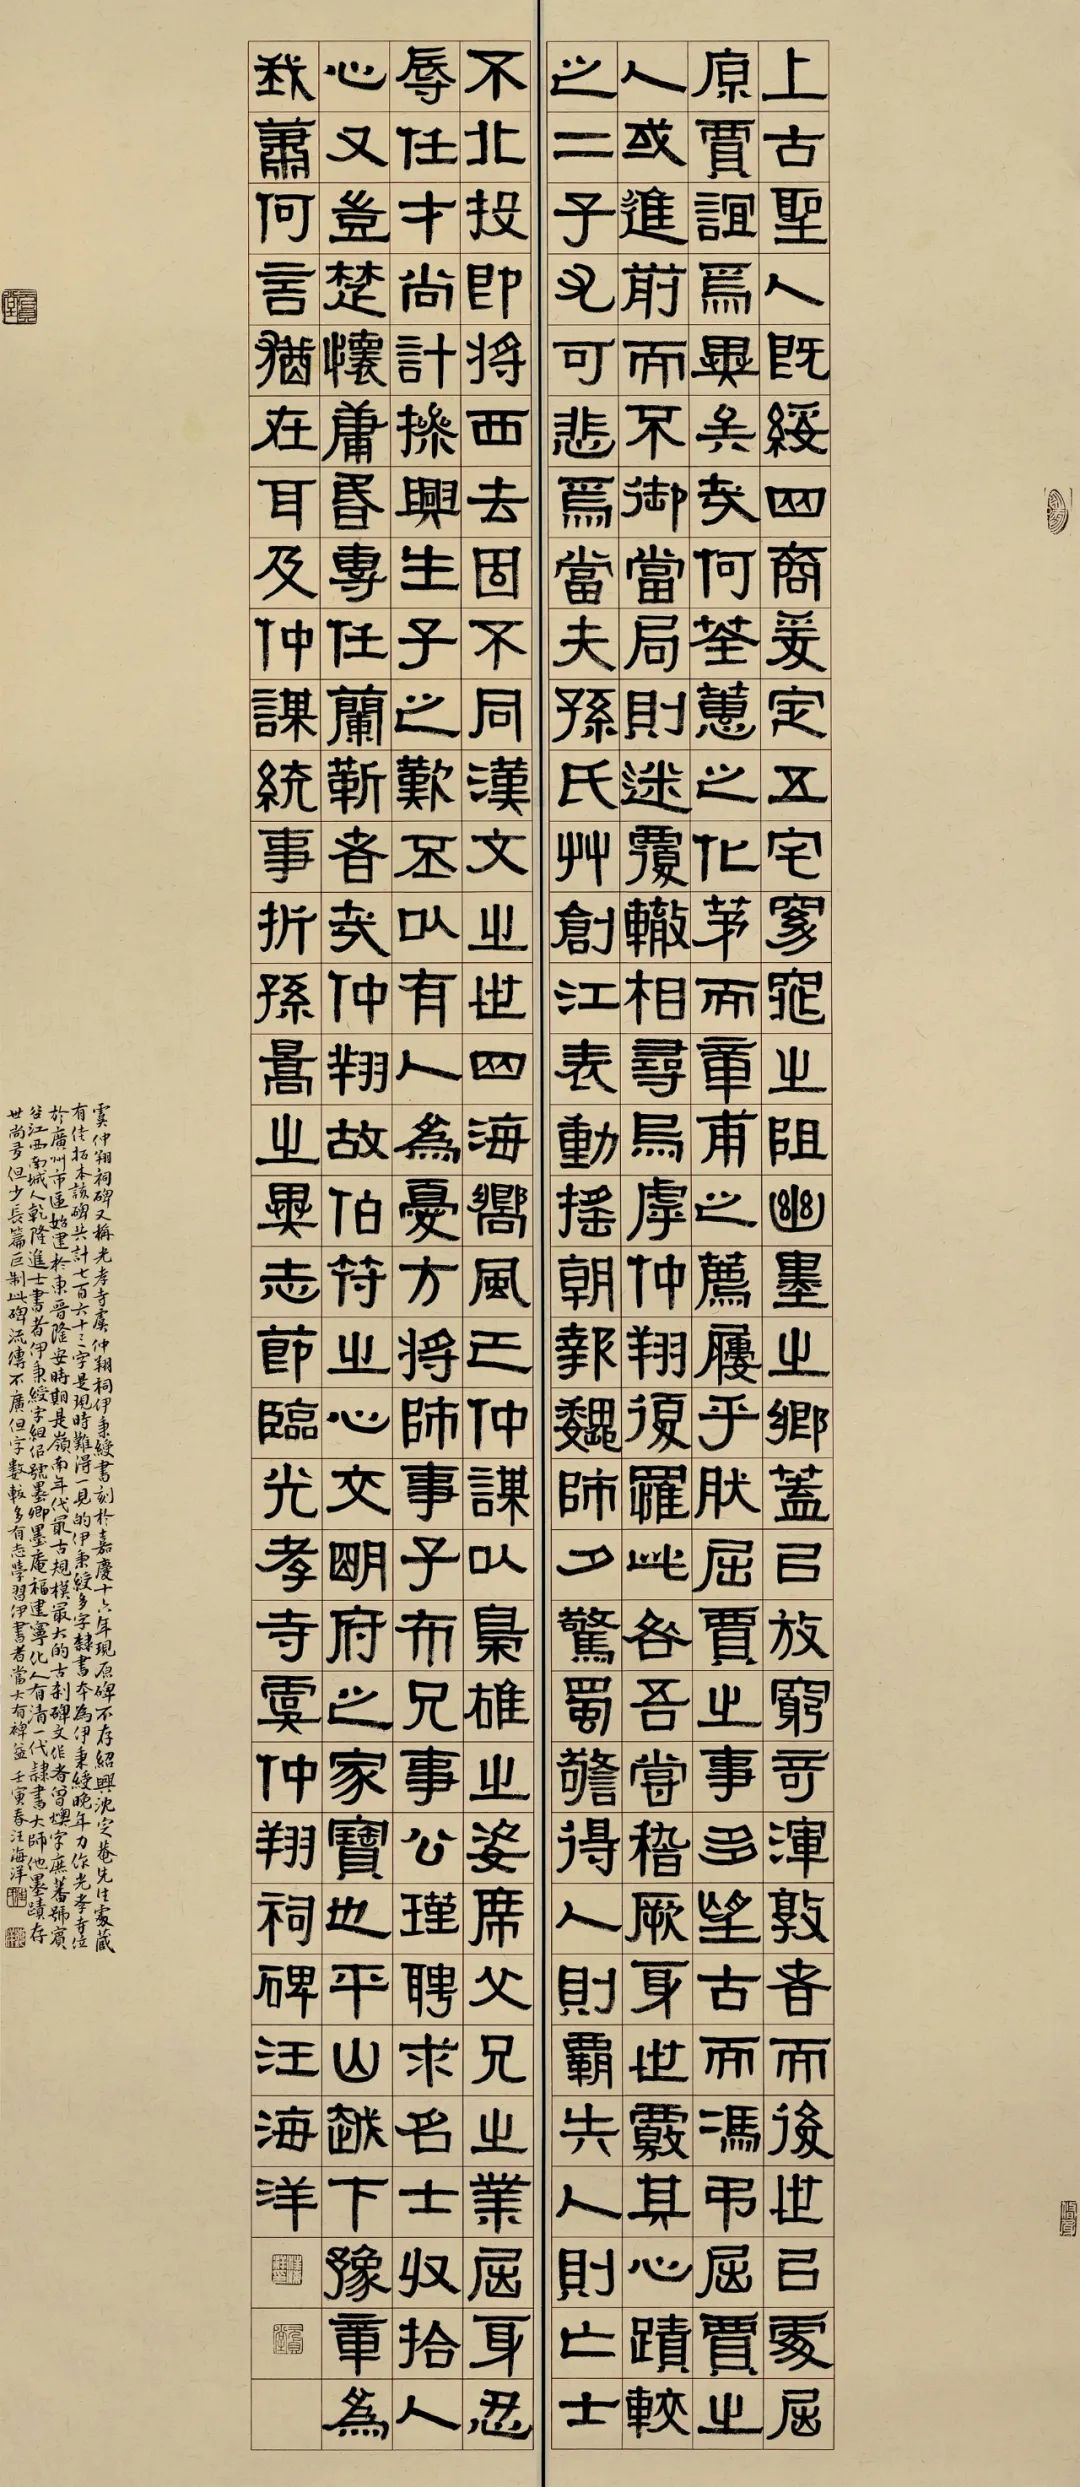 上古聖人既綏四裔爰定五宅窮窕之阻幽墨之鄉蓋已放窮奇渾敦者而後世已處屈
原賈誼焉異矣哉何荃蕙之化茅而章甫之薦屨乎肰屈賈之事多望古而馮弔屈賈之
人或進前而不御當局則迷覆轍相尋烏虖仲翔復罹此咎吾嘗稽厥身世覈其心蹟較
之二子尤可悲焉當夫孫氏艸創江表動搖朝報魏師夕驚蜀警得人則霸失人則亡士
不北投即將西去固不同漢文之世四海嚮風已仲謀以梟雄之姿席父兄之業屈身忍
辱任才尚計操興生子之歎丕以有人為憂方將師事子布兄事公瑾聘求名士收拾人
心又豈楚懷庸昏專任蘭靳者哉仲翔故伯符之心交明府之家寶也平山越下豫章為
我蕭何言猶在耳及仲謀統事折孫暠之異志節臨光孝寺虞仲翔祠碑汪海洋
虞仲翔祠碑又稱光孝寺虞仲翔祠伊秉綬書刻於嘉慶十六年現原碑不存紹興沈定菴先生處藏
有佳拓本該碑共計七百六十三字是現時難得一見的伊秉綬多字隸書本為伊秉綬晚年力作光孝寺位
於廣州市區始建於東晉隆安時期是嶺南年代最古規模最大的古刹碑文作者曾燠字庶蕃號賓
谷江西南城人乾隆進士書者伊秉綬字組佀號墨卿墨庵福建寧化人有清一代隸書大師他墨蹟存
世尚多但少長篇巨制此碑流傳不廣但字數較多有志學習伊書者當大有裨益壬寅春汪海洋